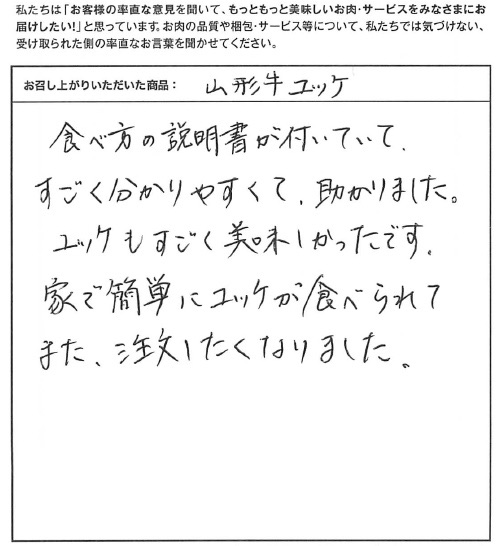 私たちは「お客様の率直な意見を聞いて、もっともっと美味しいお肉・サービスをみなさまにお
届けしたい!」と思っています。お肉の品質や梱包・サービス等について、私たちでは気づけない、
受け取られた側の率直なお言葉を聞かせてください。
お召し上がりいただいた商品： 山形牛ユッケ
食べ方の説明書が付いていて、
すごく分かりやすくて、助かりました。
ユッケもすごく美味しかったです。
家で簡単にユッケが食べられて
また、注文したくなりました。